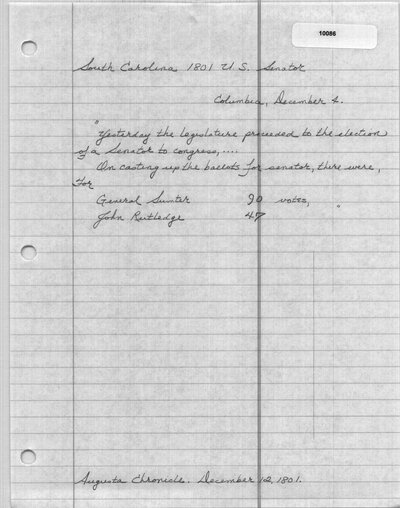 10086
South Carolina 1801 U.S. Senator
Columbia, December 4.
"Yesterday the legislature proceeded to the election
of a Senator to congress,....
On casting up the ballots for senator, there were,
For
General Sumter 90 votes,
John Rutledge 47 "
Augusta Chronicle. December 12, 1801.